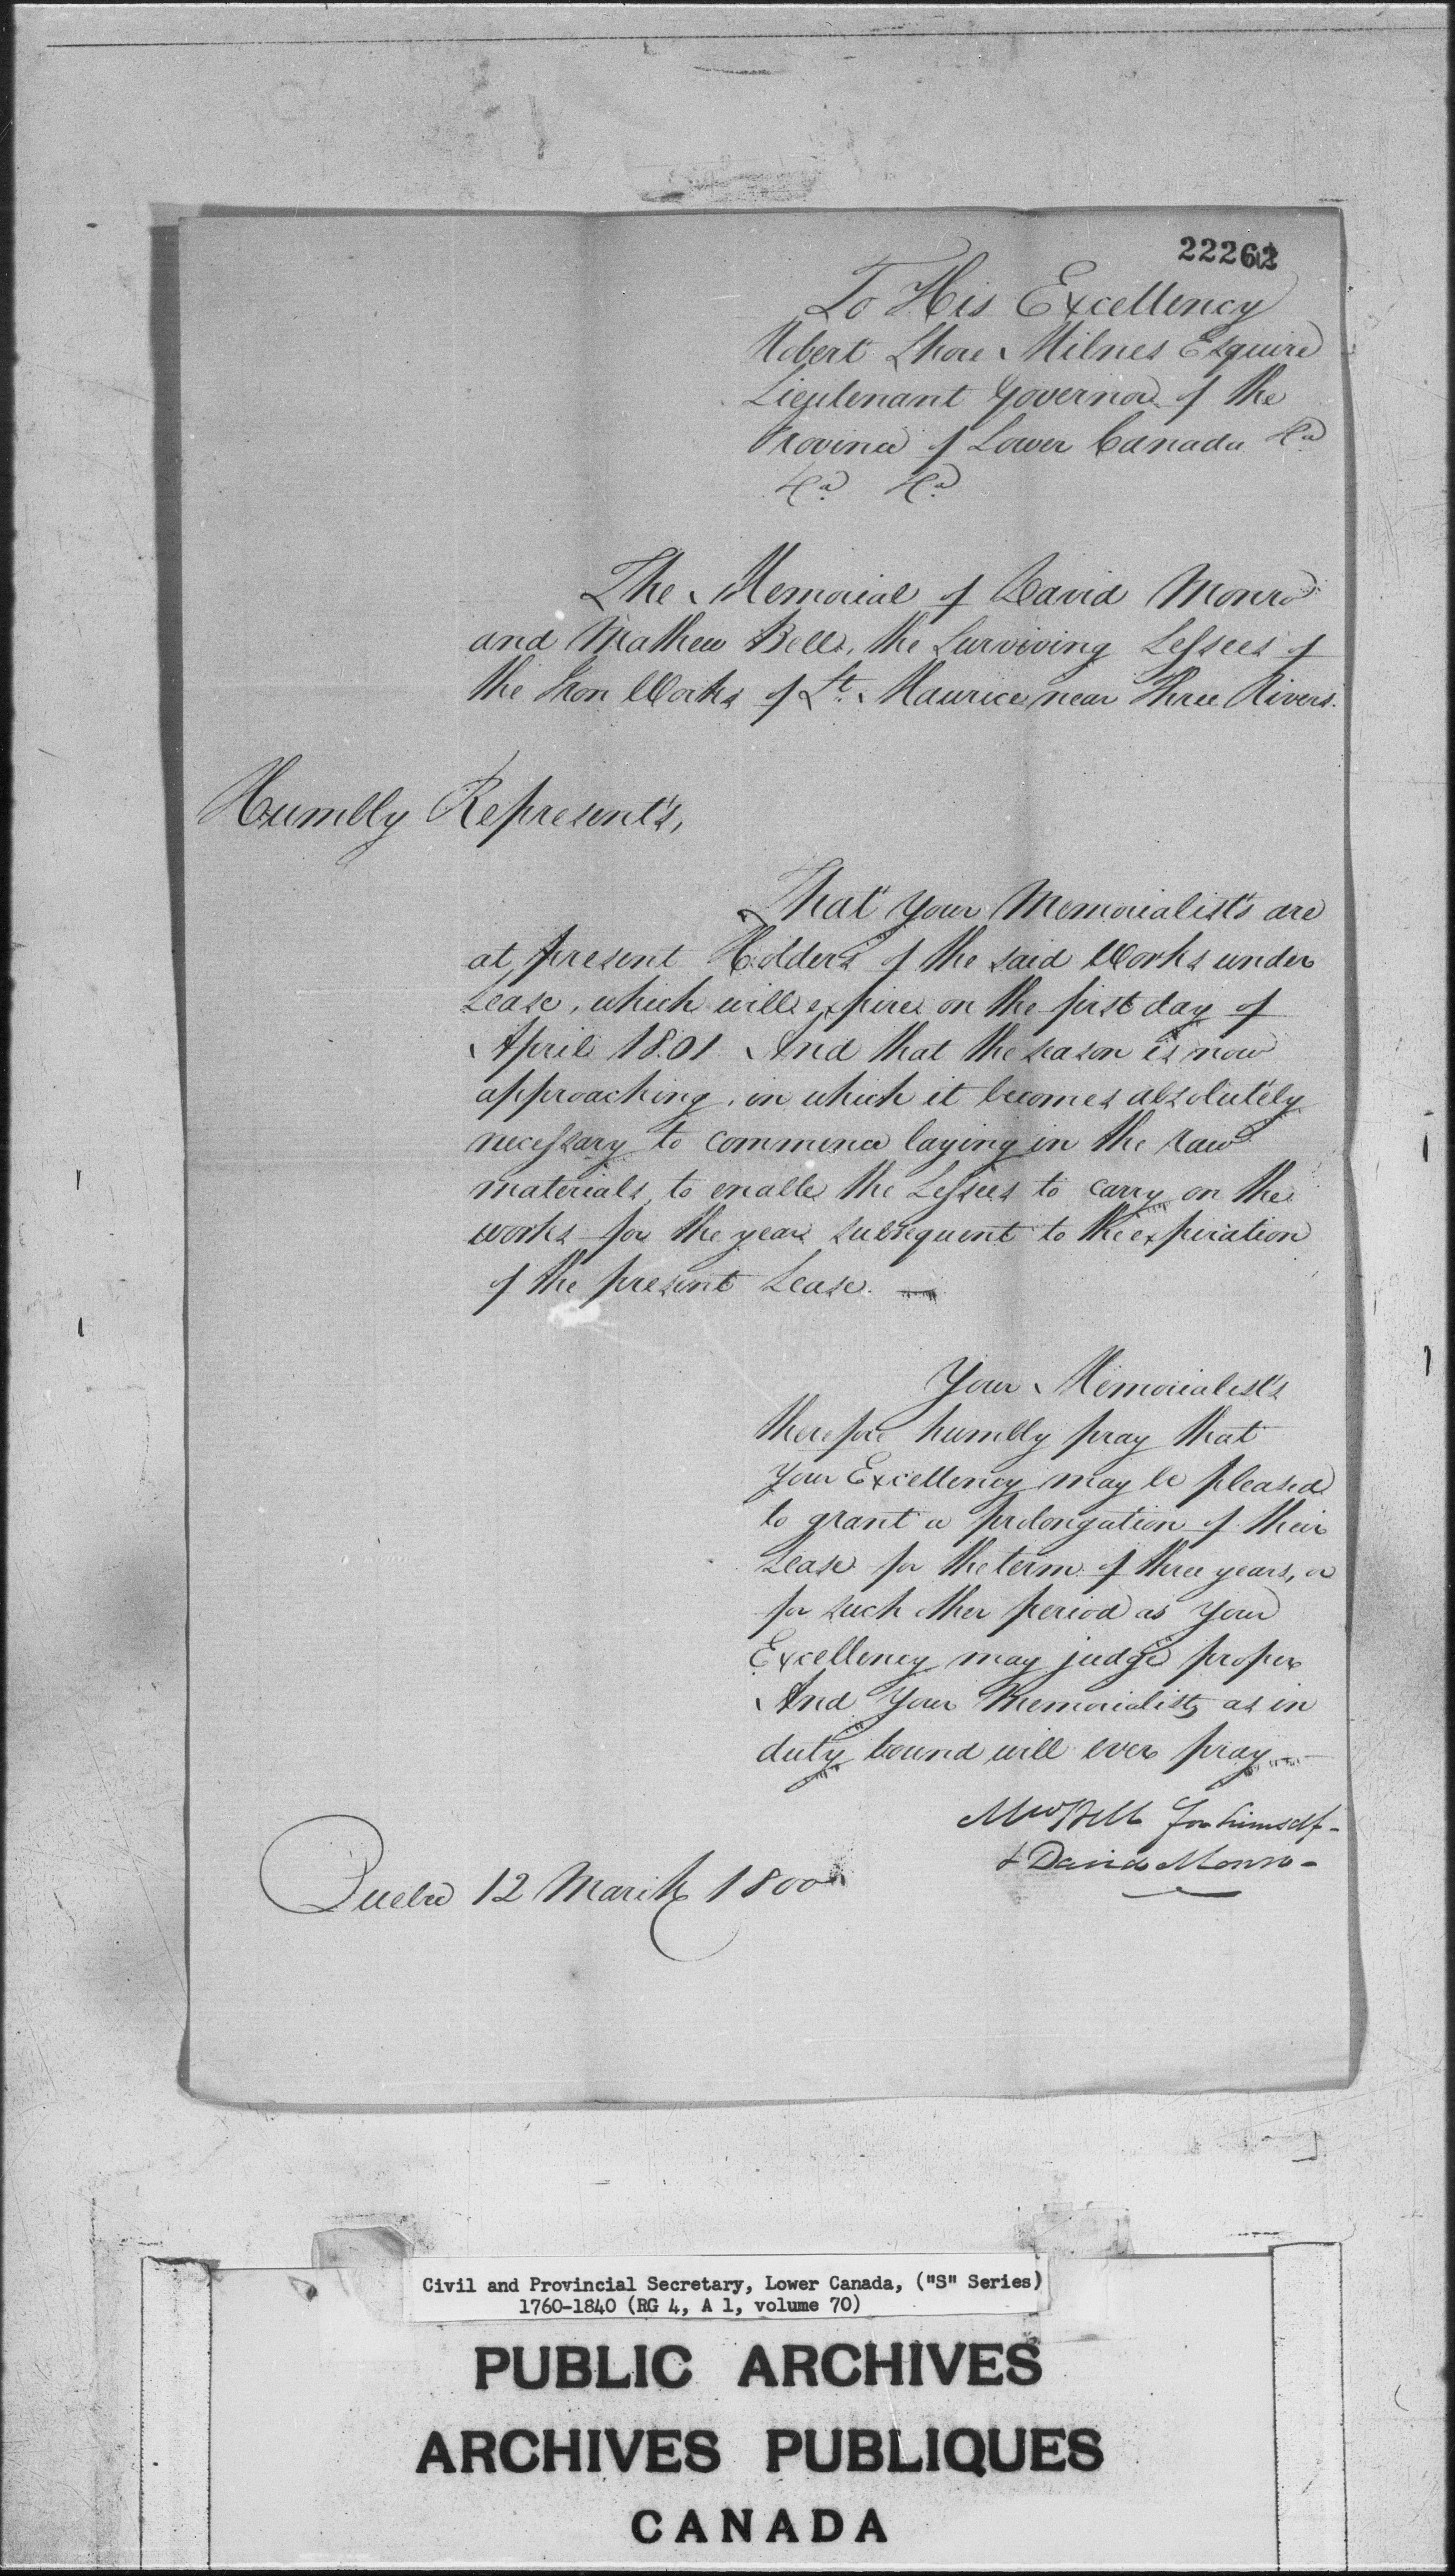 22262
To His Excellency
Robert Shore Milnes Esquire
Lieutenant Governor of the
Province of Lower Canada &ca
&ca &ca
The Memorial of David Monro
and Mathew Bell, the Surviving Lessees of
the Iron Works of St. Maurice near Three Rivers.
Humbly Represent's,
That your Memorialist's are
at present Holders of the said Works under
Lease, which will expire on the first day of
April 1801. And that the season is now
approaching, in which it becomes absolutely
necessary to commence laying in the raw
materials, to enable the Lessees to carry on the
works for the year subsequent to the expiration
of the present Lease. —
Your Memorialist's
therefore humbly pray that
Your Excellency may be pleased
to grant a prolongation of their
Lease for the term of three years, or
for such other period as Your
Excellency may judge proper
And Your Memorialists, as in
duty bound will ever pray —
Mw Bell for himself -
& David Monro -
Quebec 12 March 1800
Civil and Provincial Secretary, Lower Canada, ("S" Series)
1760-1840 (RG 4, A 1, volume 70)
PUBLIC ARCHIVES
ARCHIVES PUBLIQUES
CANADA